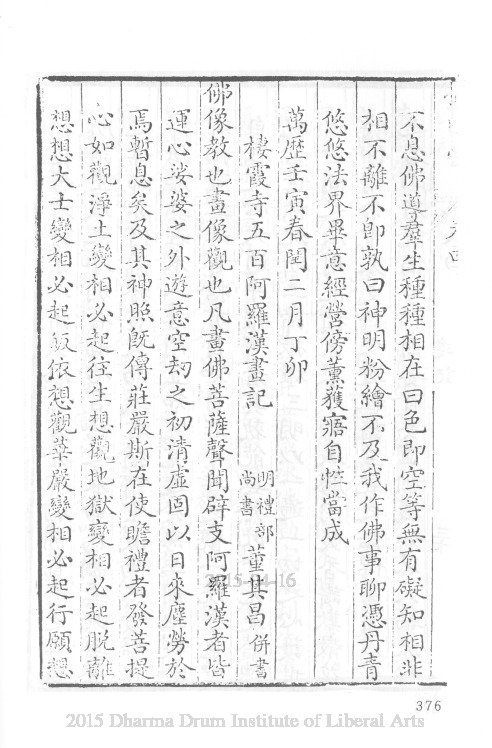 不息佛道羣生種種相在曰色即空等無有礙知相非
相不離不即孰曰神明粉繪不及我作佛事聊憑丹青
悠悠法界畢意經營傍薰獲寤自性當成
萬歷壬寅春閏二月丁卯
棲霞寺五百阿羅漢畫記 明禮部尚書 董其昌 併書
佛像教也畫像觀也凡畫佛菩薩聲聞辟支阿羅漢者皆
運心娑婆之外遊意空劫之初清虛固以日來塵勞於
焉暫息矣及其神照既傳莊嚴斯在使瞻禮者發菩提
心如觀淨土變相必起往生想觀地獄變相必起脫離
想想大士變相必起皈依想觀華嚴變相必起行願想
2015-04-16
376
2015 Dharma Drum Institute of Liberal Arts